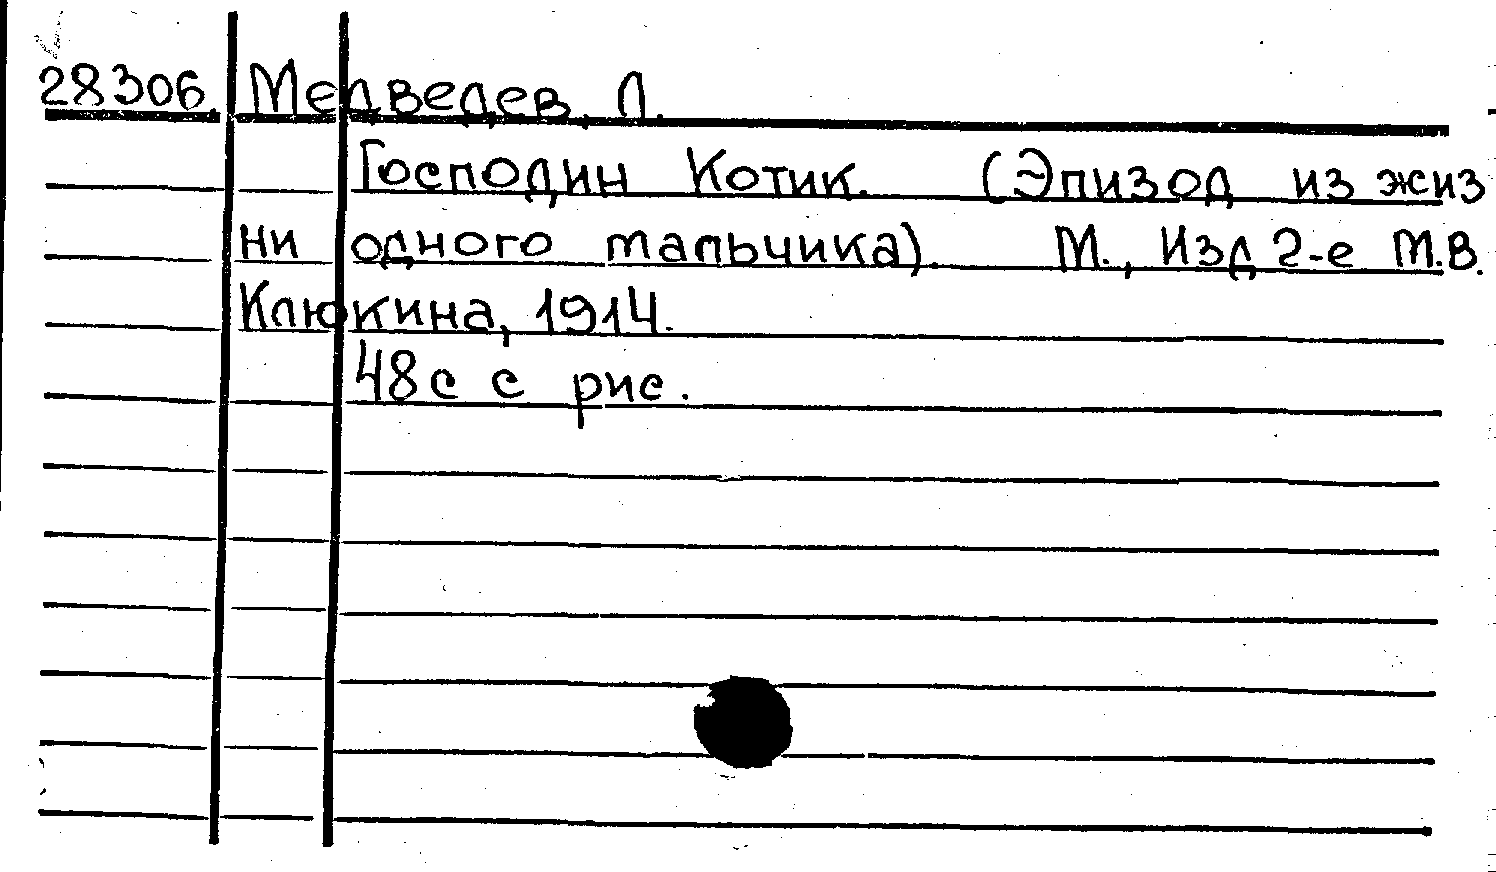 28306. Медведев, Л.
Господин Котик. (Эпизод из жиз
ни одного мальчика). М., Изд 2-е М.В.
Клюкина, 1914.
48с с рис.